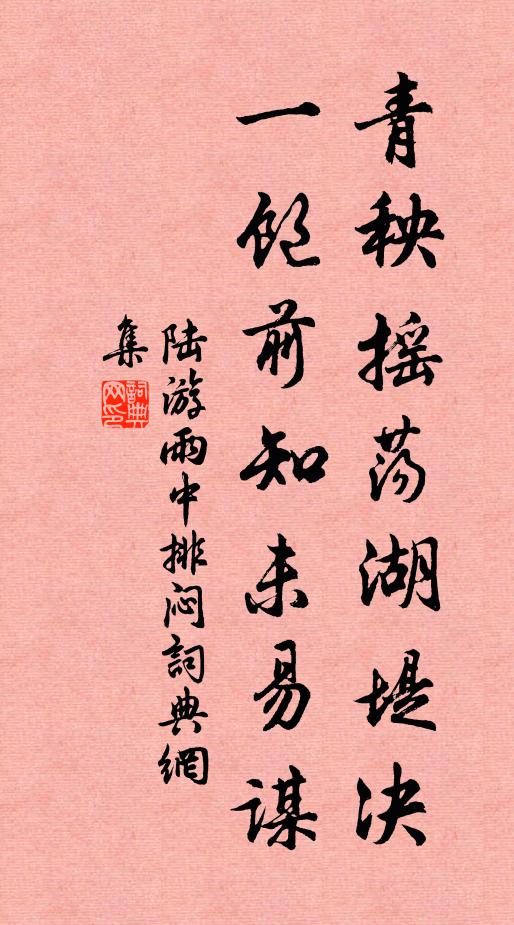 青秧摇荡湖堤决
一饱前知未易谋
陆游雨中排闷詞典網
集
詞典
网印